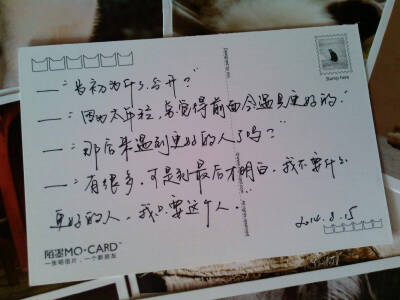 Stamp here
—"当初为什么分开?"
—"因为太年轻,总觉得前面会遇见更好的."
—"那后来遇到更好的人了吗?"
—"有很多,可是到最后才明白,我不要什么
更好的人,我只要这个人."
2014.8.15
陌墨MO·CARD
一张明信片,一个新朋友